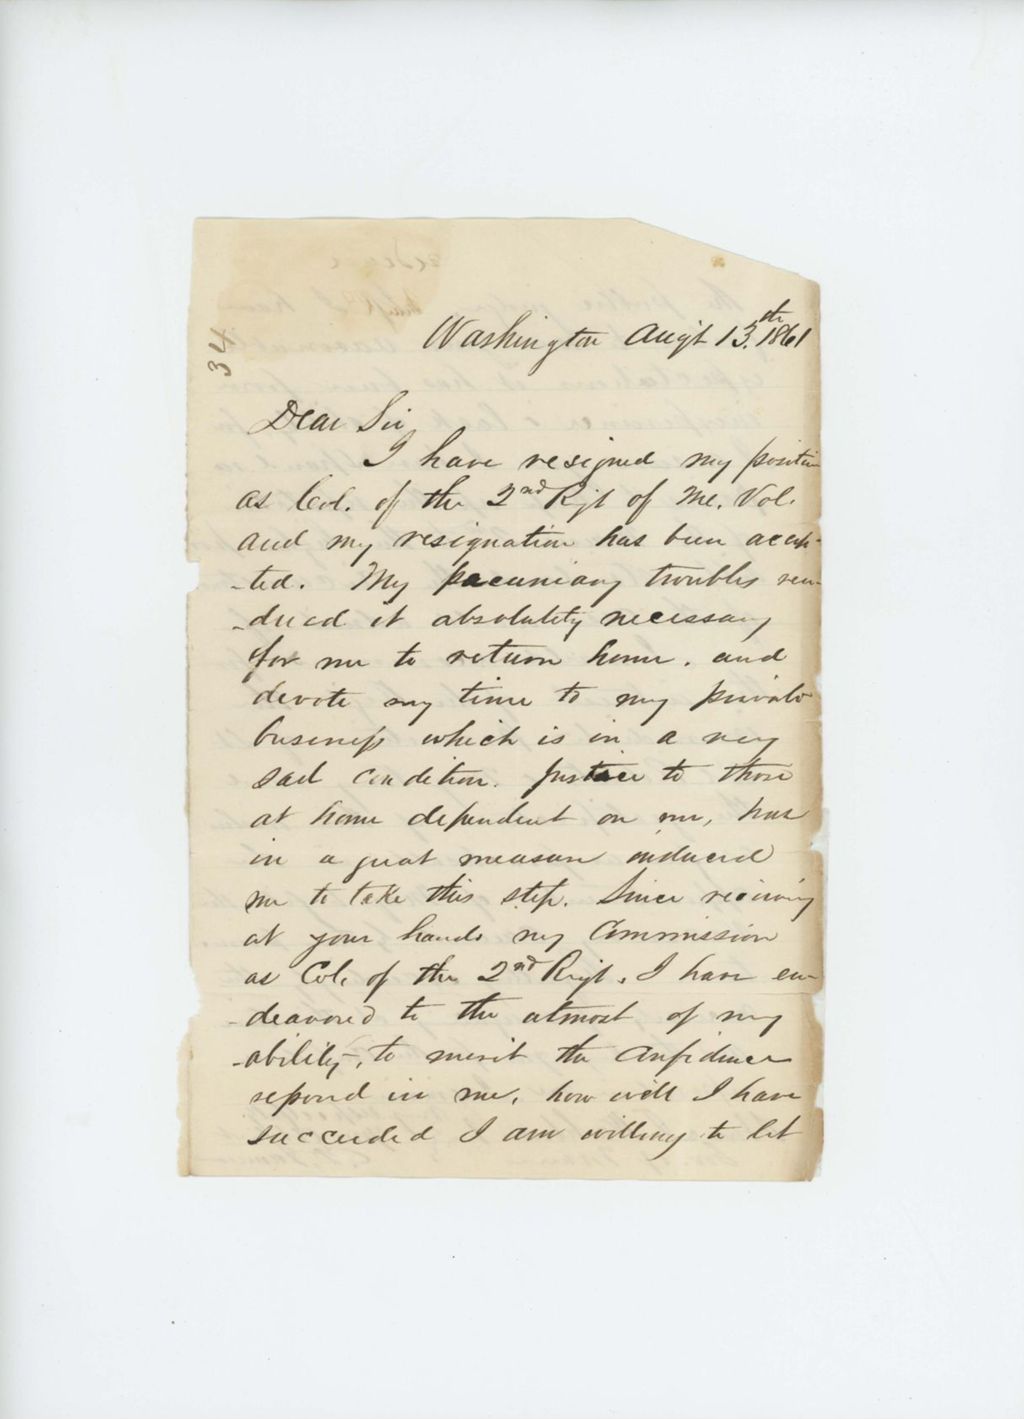 34
Washington Augt 13.th 1861
Dear Sir
I have resigned my positin
as Col. of the 2nd Rgt of Me. Vol.
and my resignation has been accep-
-ted. My pecuniary troubles ren-
-dered it absolutely necessary
for me to return home. and
devote my time to my private
business which is in a very
sad condition. Justice to those
at home dependent on me, has
in a great measure induced
me to take this step. Since receiving
at your hands my Commission
as Col. of the 2nd Regt. I have en-
-deavored to the utmost of my
-ability, to merit the Confidence
reposed in me, how well I have
succeeded I am willing to let